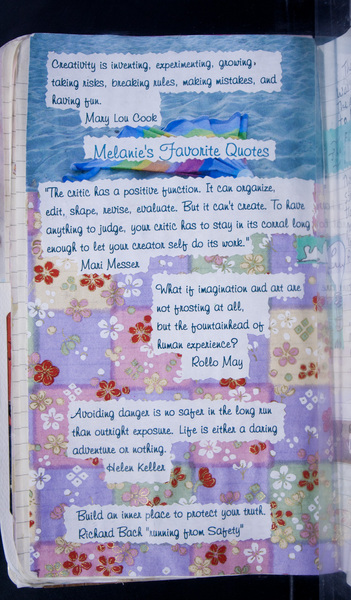 Creativity is inventing, experimenting, growing,
taking risks, breaking rules, making mistakes, and
having fun.
Mary Lou Cook
Melanie's Favorite Quotes
"The critic has a positive function. It can organize,
edit, shape, revise, evaluate. But it can't create. To have
anything to judge, your critic has to stay in its corral long
enough to let your creator self do its work."
Mari Messer
"What if imagination and art are
not frosting at all,
but the fountainhead of
human experience?
Rollo May
Avoiding danger is no safer in the long run
than outright exposure. Life is either a daring
adventure or nothing.
Helen Keller
Build an inner place to protect your truth.
Richard Bach "running from Safety"